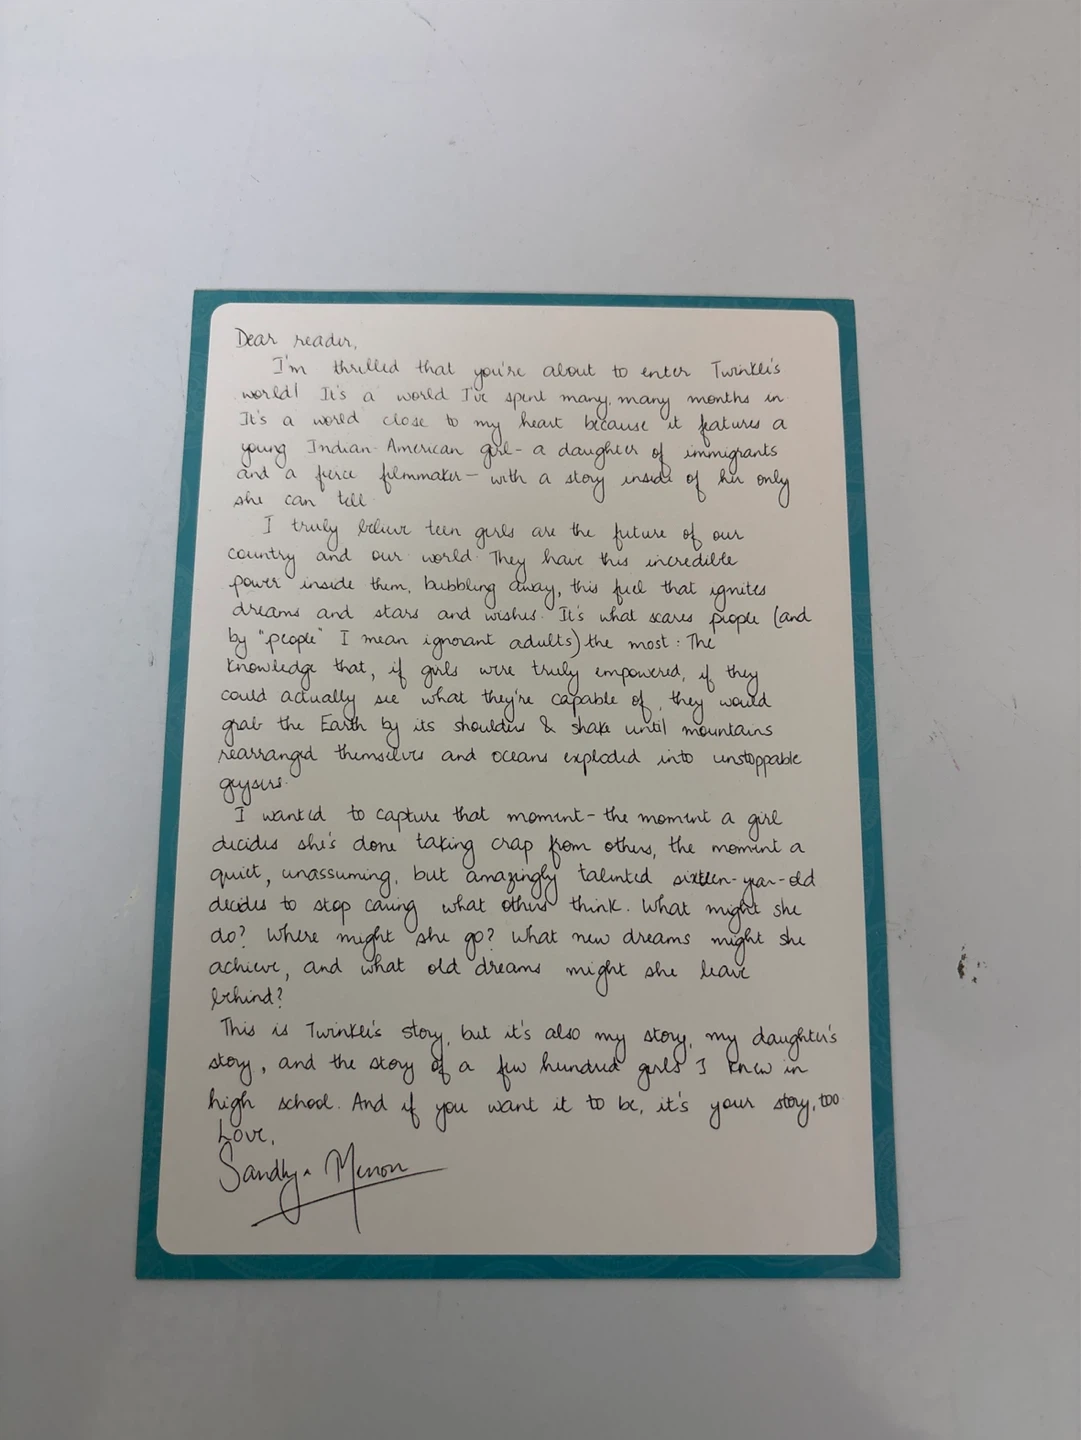 Dear reader,
I'm thrilled that you're about to enter Twinkle's
world! It's a world I've spent many, many months in.
It's a world close to my heart because it features a
young Indian-American girl - a daughter of immigrants
and a fierce filmmaker - with a story inside of her only
she can tell.
I truly believe teen girls are the future of our
country and our world. They have this incredible
power inside them, bubbling away, this fuel that ignites
dreams and stars and wishes. It's what scares people (and
by "people" I mean ignorant adults) the most: The
knowledge that, if girls were truly empowered, if they
could actually see what they're capable of, they would
grab the Earth by its shoulders & shake until mountains
rearranged themselves and oceans exploded into unstoppable
geysers.
I wanted to capture that moment - the moment a girl
decides she's done taking crap from others, the moment a
quiet, unassuming, but amazingly talented sixteen-year-old
decides to stop caring what others think. What might she
do? Where might she go? What new dreams might she
achieve, and what old dreams might she leave
behind?
This is Twinkle's story, but it's also my story, my daughter's
story, and the story of a few hundred girls I knew in
high school. And if you want it to be, it's your story, too.
Love,
Sandhya Menon